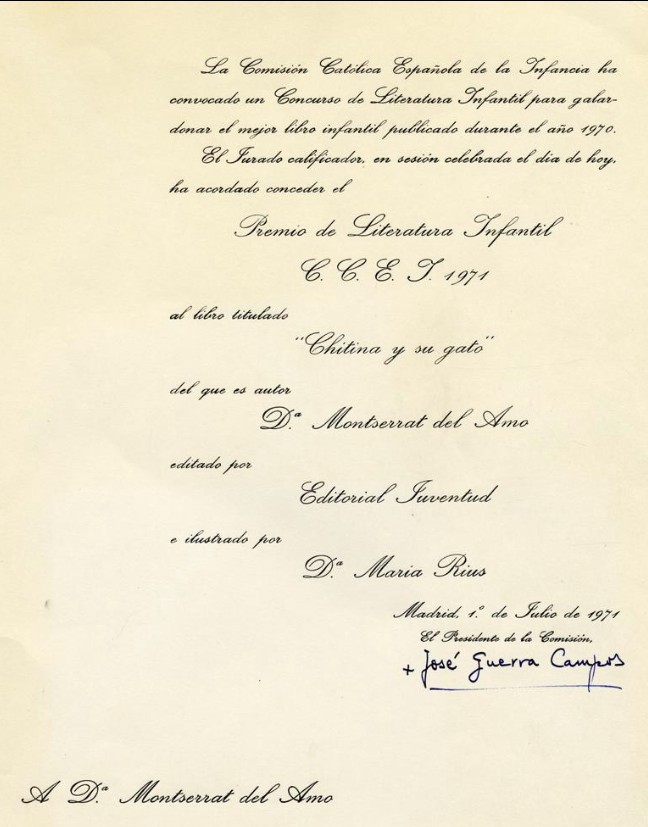 La Comisión Católica Española de la Infancia ha
convocado un Concurso de Literatura Infantil para galar-
donar el mejor libro infantil publicado durante el año 1970.
El Jurado calificador, en sesión celebrada el dia de hoy,
ha acordado conceder el
Premio de Literatura Infantil
C. C. E. I. 1971
al libro titulado
"Chitina y su gato"
del que es autor
D.ª Montserrat del Amo
editado por
Editorial Juventud
e ilustrado por
D.ª Maria Rius
Madrid, 1.º de Julio de 1971
El Presidente de la Comisión,
+ José Guerra Campos
A D.ª Montserrat del Amo